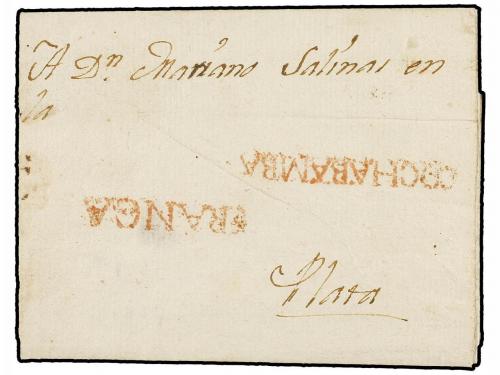 A Dn. Mariano Salinas en
la
COCHABAMBA
FRANCA
Plata